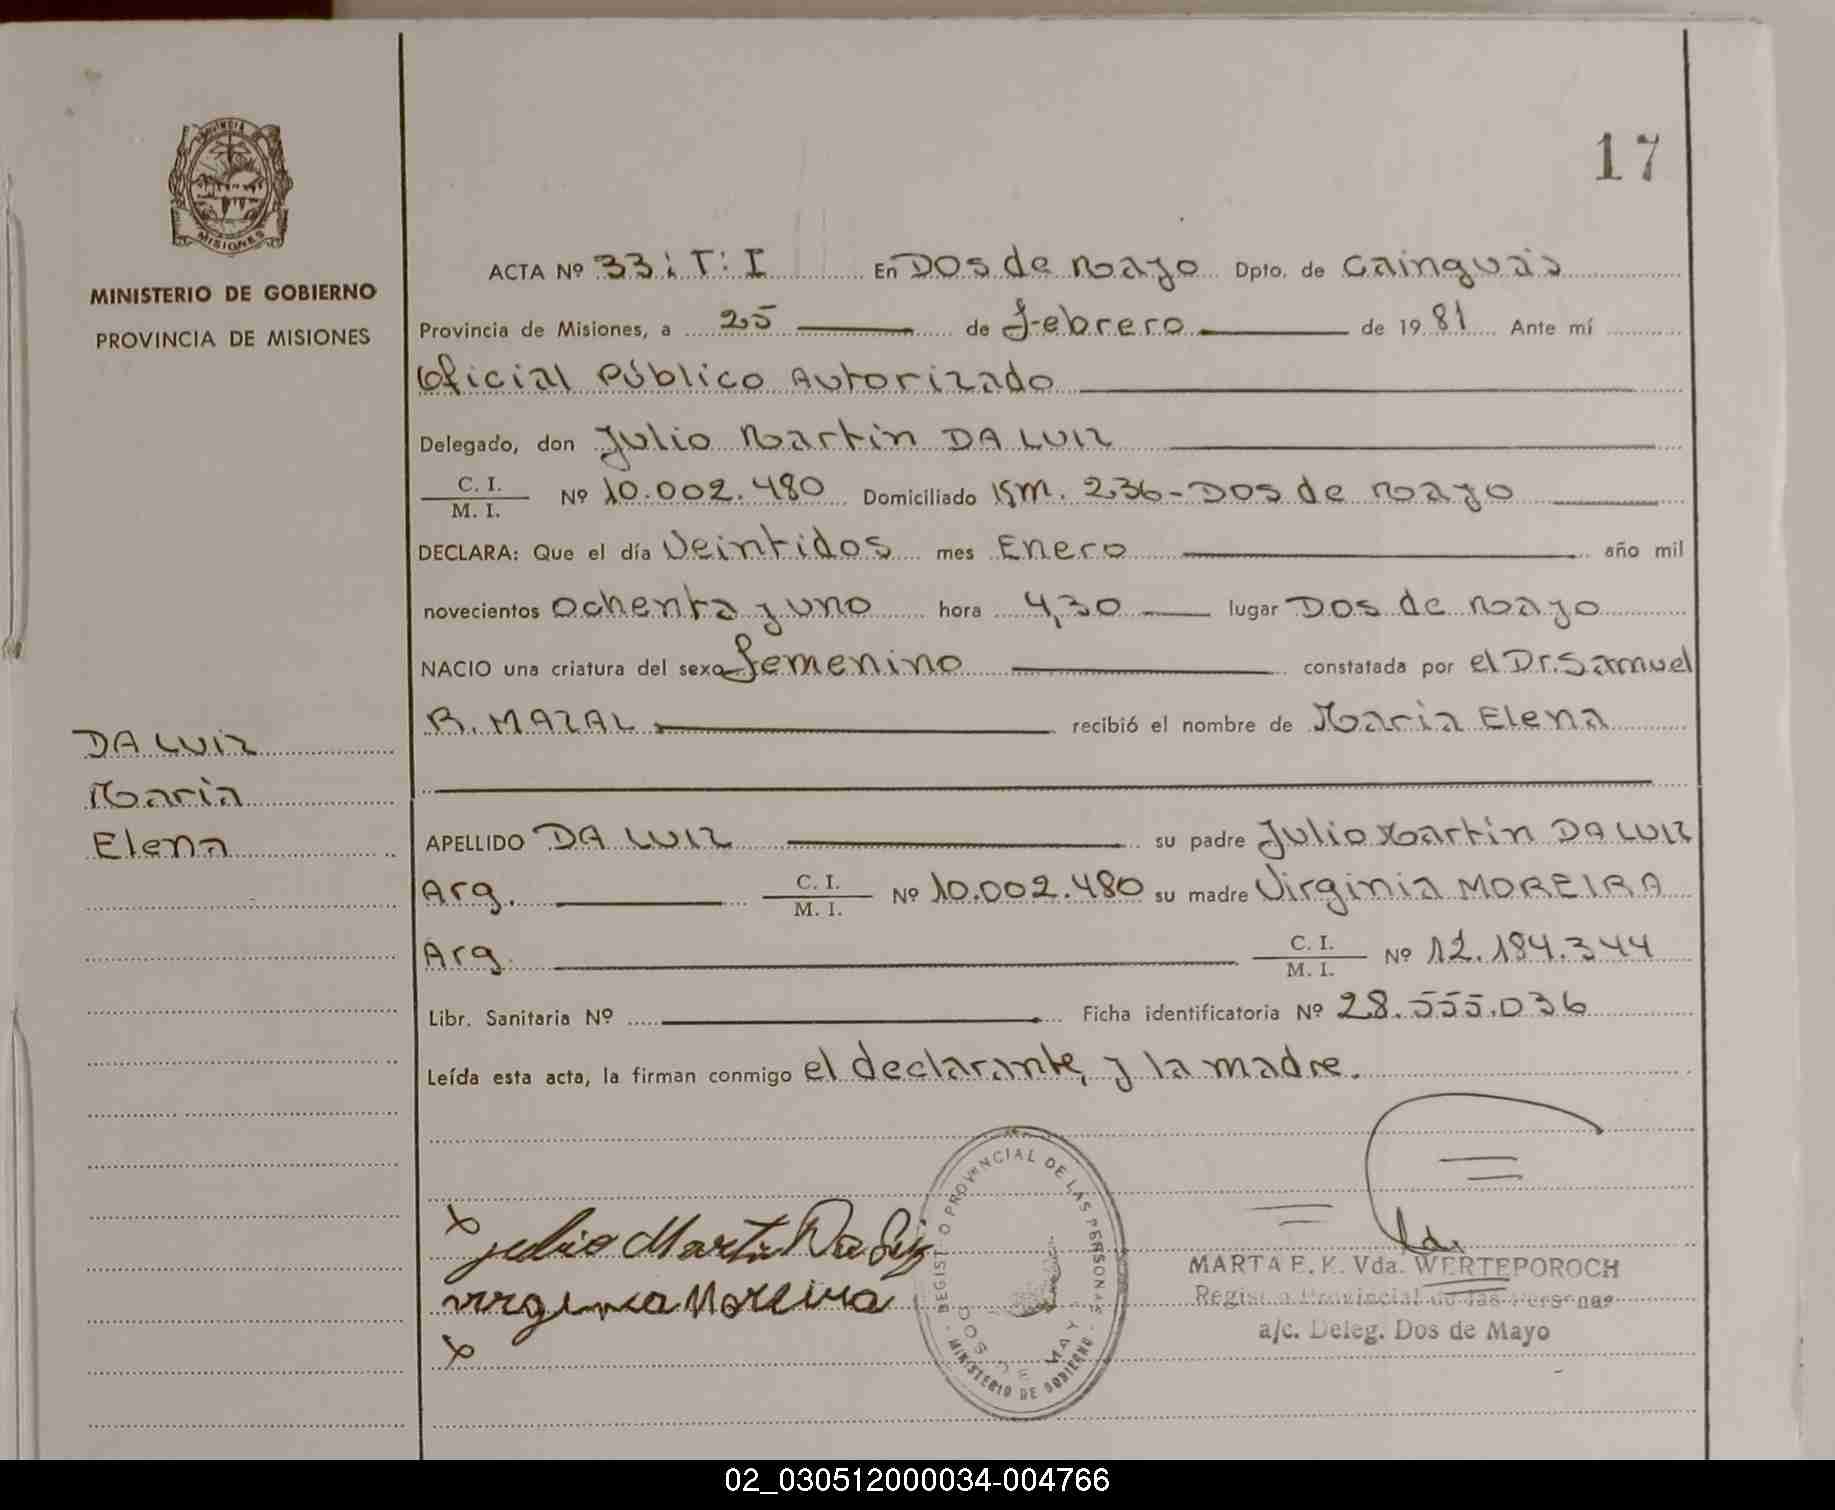 17
PROVINCIA
MISIONES
MINISTERIO DE GOBIERNO
PROVINCIA DE MISIONES
ACTA Nº 33; T: I En Dos de Mayo Dpto. de Cainguàs
Provincia de Misiones, a 25 de Febrero de 1981 Ante mí
Oficial Público Autorizado
Delegado, don Julio Martin DA LUIZ
C. I.
M. I. Nº 10.002.480 Domiciliado Km. 236-Dos de Mayo
DECLARA: Que el día Veintidos mes Enero año mil
novecientos ochenta y uno hora 4,30 lugar Dos de Mayo
NACIO una criatura del sexo femenino constatada por el Dr. Samuel
R. MAZAL recibió el nombre de Maria Elena
DA LUIZ
Maria
Elena
APELLIDO DA LUIZ su padre Julio Martin DA LUIZ
Arg. C. I.
M. I. Nº 10.002.480 su madre Virginia MOREIRA
Arg. C. I.
M. I. Nº 12.184.344
Libr. Sanitaria Nº Ficha identificatoria Nº 28.555.036
Leída esta acta, la firman conmigo el declarante, y la madre.
REGISTRO PROVINCIAL DE LAS PERSONAS
MINISTERIO DE GOBIERNO
x Julio Martin Da Luiz
Virginia Moreira
x
MARTA E. K. Vda. WERTEPOROCH
Registro Provincial de las Personas
a/c. Deleg. Dos de Mayo
02_030512000034-004766